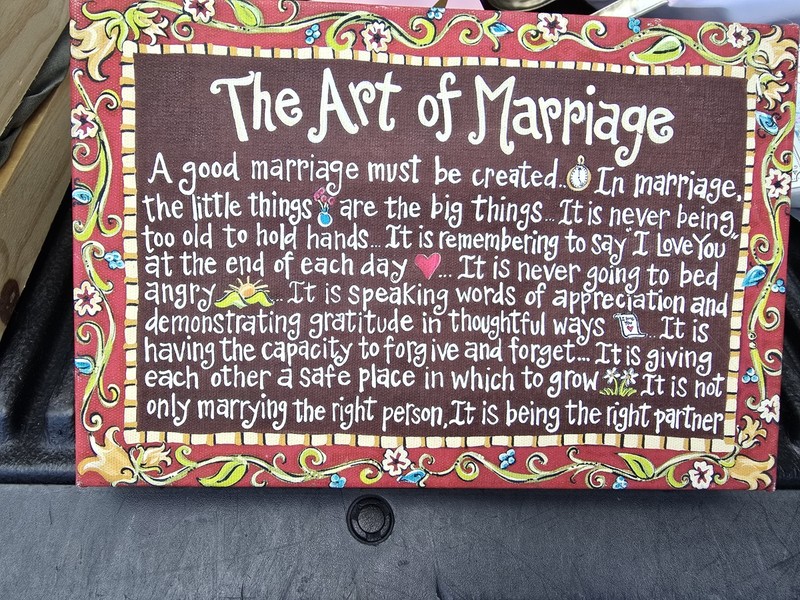 The Art of Marriage
A good marriage must be created.. In marriage,
the little things are the big things... It is never being
too old to hold hands... It is remembering to say "I Love You"
at the end of each day ... It is never going to bed
angry ... It is speaking words of appreciation and
demonstrating gratitude in thoughtful ways ... It is
having the capacity to forgive and forget... It is giving
each other a safe place in which to grow It is not
only marrying the right person, It is being the right partner